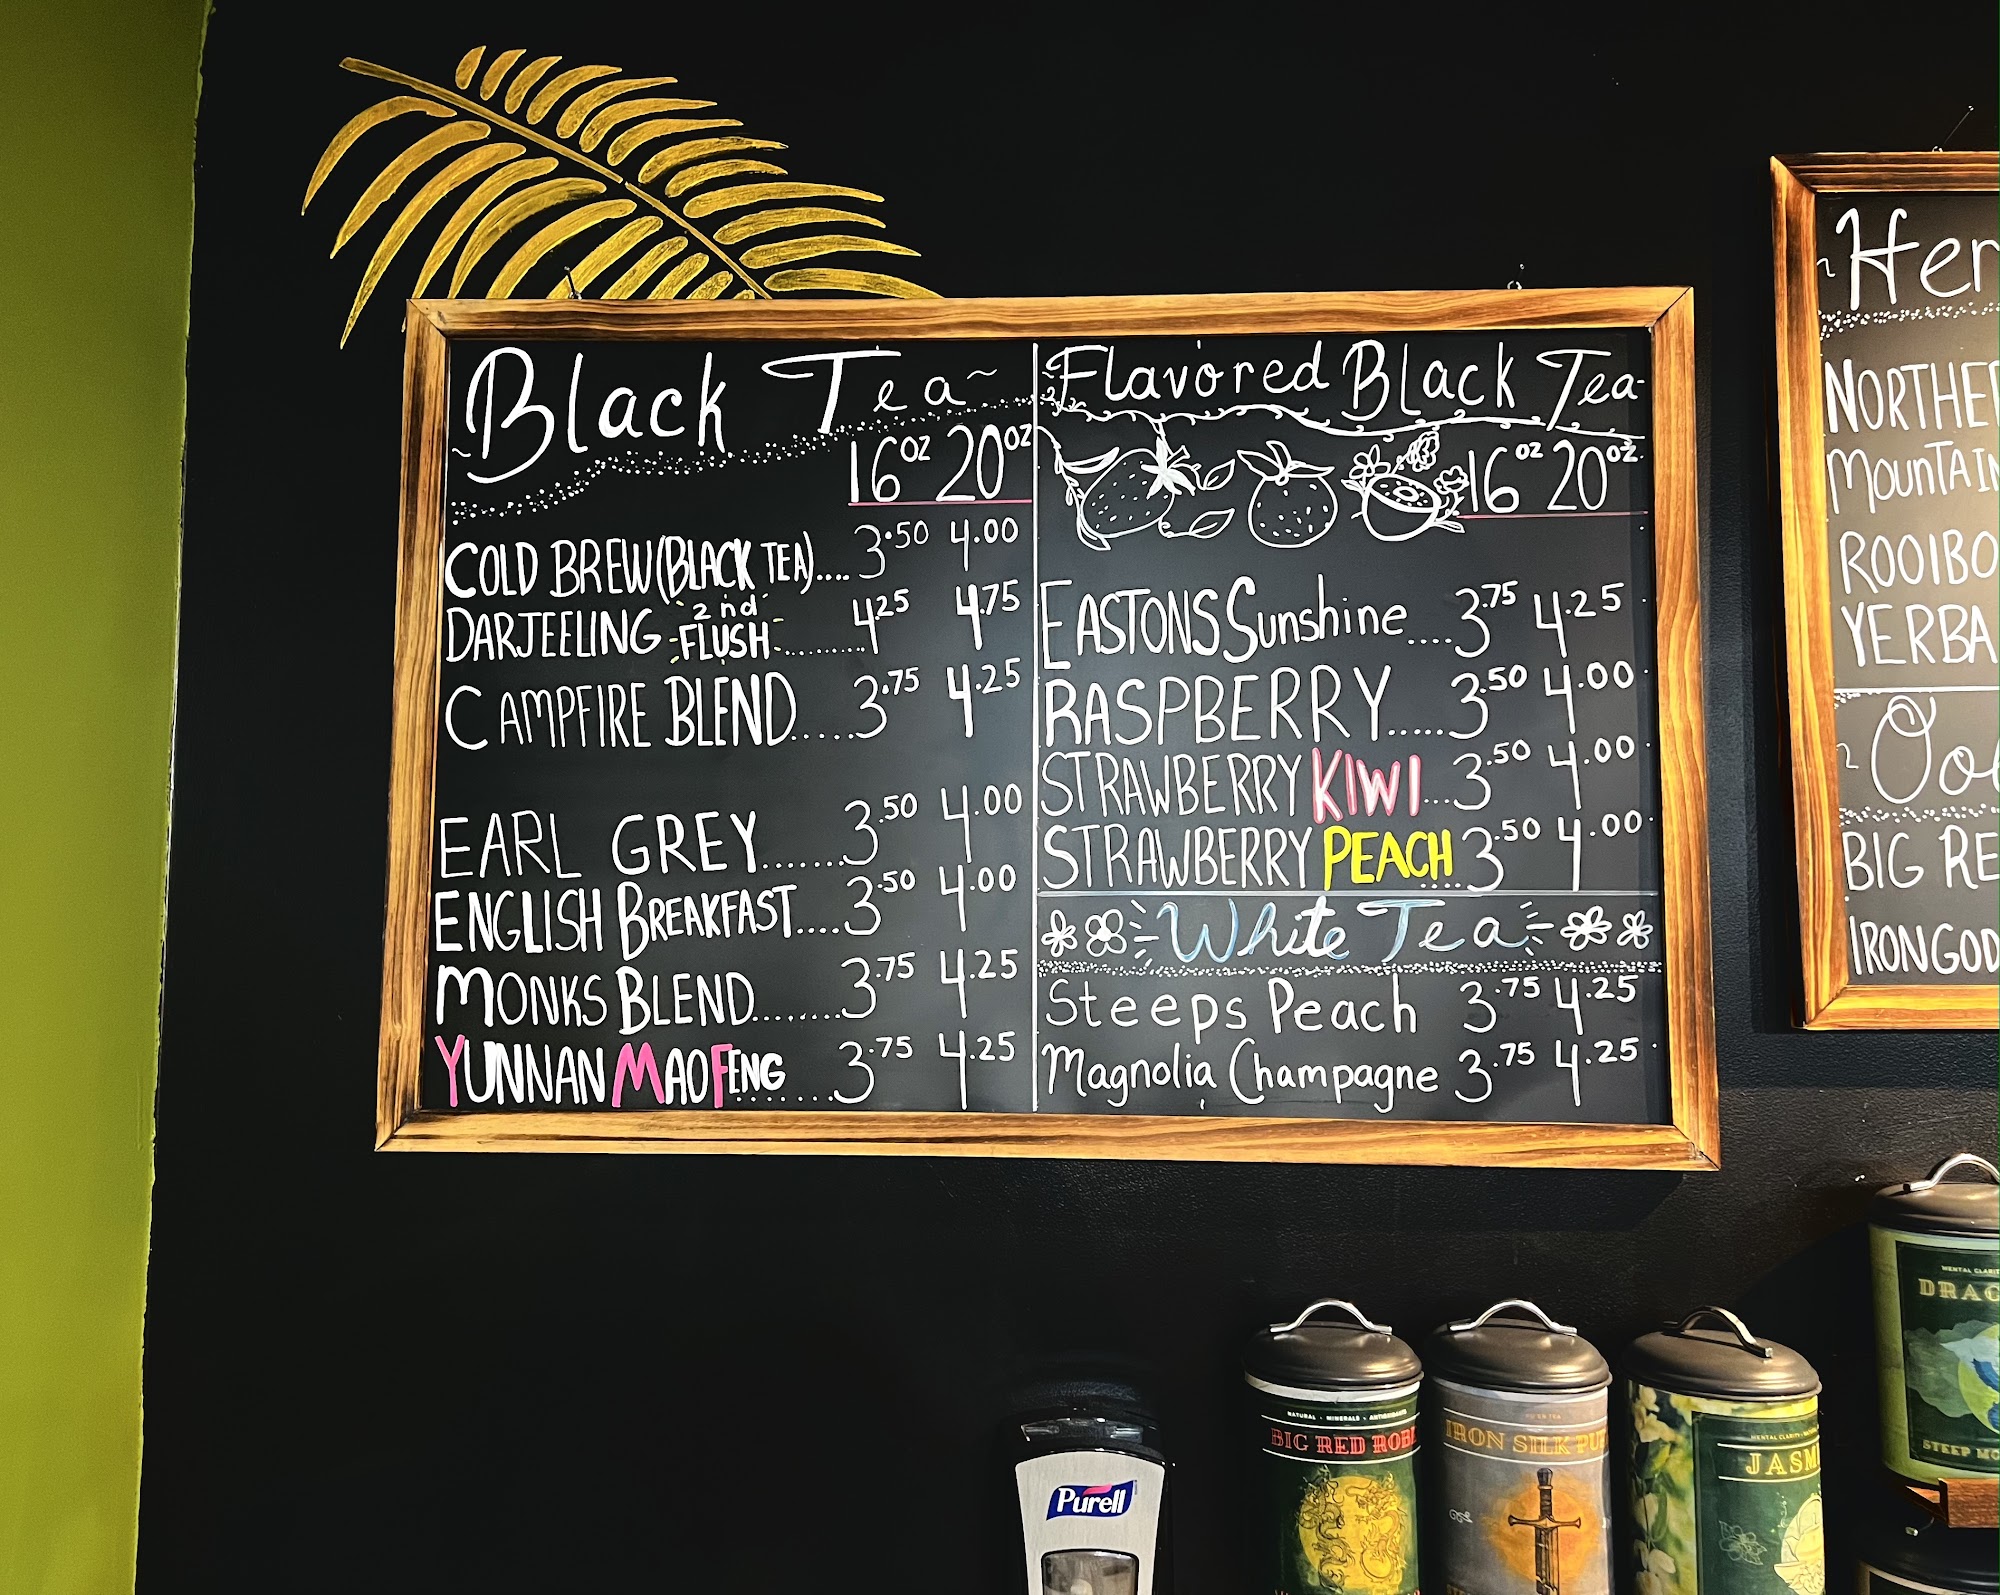 Black Tea
16oz 20oz
COLD BREW (BLACK TEA).... 3.50 4.00
DARJEELING 2nd FLUSH ......... 4.25 4.75
CAMPFIRE BLEND..... 3.75 4.25
EARL GREY....... 3.50 4.00
ENGLISH BREAKFAST.... 3.50 4.00
MONKS BLEND........ 3.75 4.25
YUNNAN MAOFENG ........ 3.75 4.25
Flavored Black Tea
16oz 20oz
EASTONS Sunshine.... 3.75 4.25
RASPBERRY..... 3.50 4.00
STRAWBERRY KIWI... 3.50 4.00
STRAWBERRY PEACH.... 3.50 4.00
White Tea
Steeps Peach 3.75 4.25
Magnolia Champagne 3.75 4.25
Her
NORTHE
MOUNTAIN
ROOIBO
YERBA
Oo
BIG RE
IRON GOD
MENTAL CLARIT
DRAG
STEEP MO
NATURAL • MINERALS • ANTIOXIDANTS
BIG RED ROBE
IRON SILK PU
MENTAL CLARITY
JASM
Purell